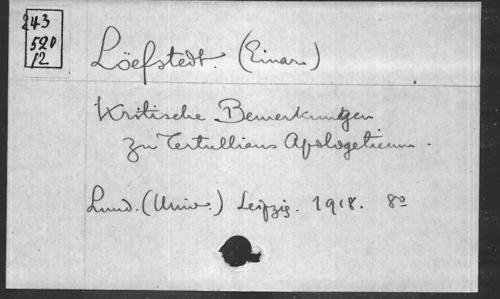 243
520
12
Löefstedt. (Einar.)
Kritische Bemerkungen
zu Tertullians Apologeticum.
Lund. (Univ.) Leipzig. 1918. 8º